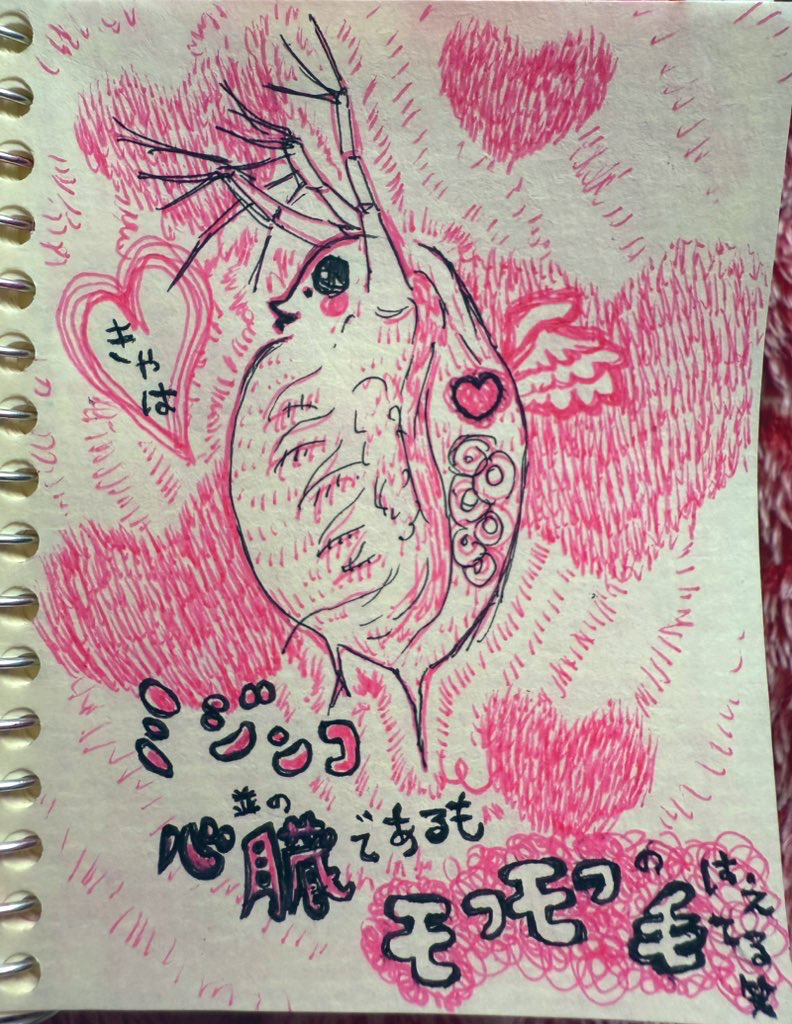 きゃは
ミジンコ
並の
心臓であるも
モッモッの
毛はえてる笑